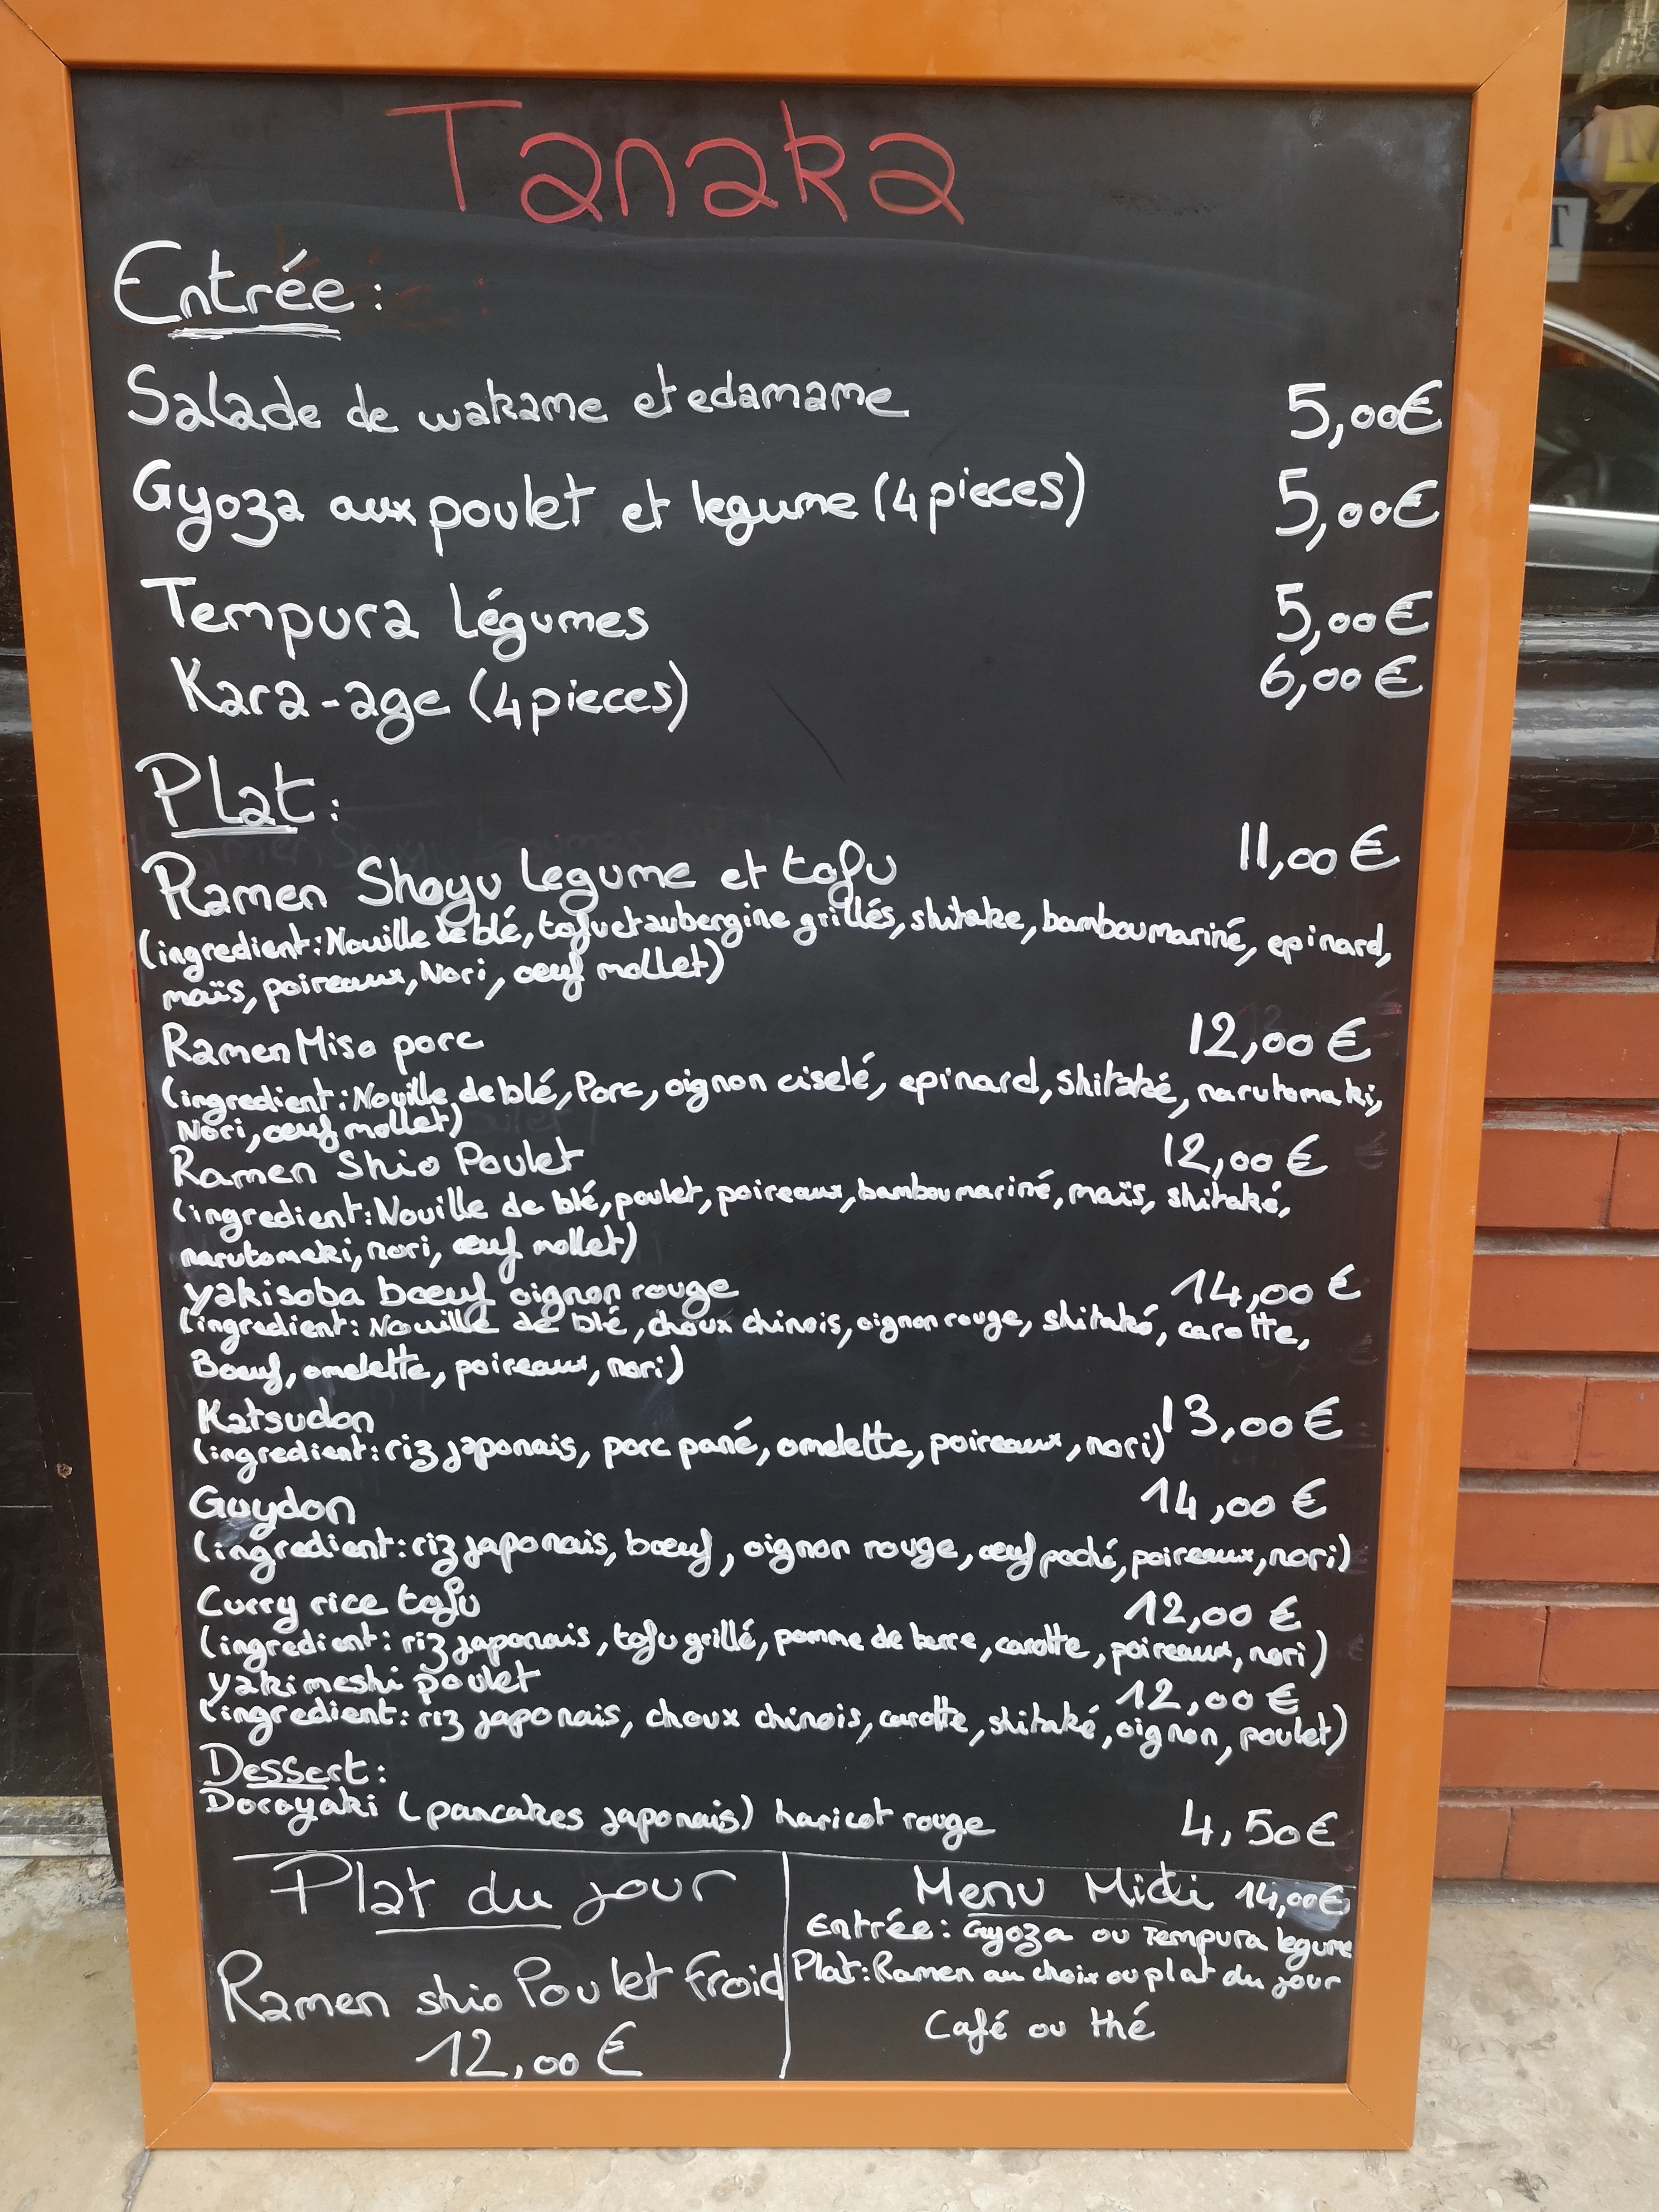 Tanaka
Entrée :
Salade de wakame et edamame 5,00€
Gyoza aux poulet et legume (4 pieces) 5,00€
Tempura Légumes 5,00€
Kara-age (4 pieces) 6,00€
Plat :
Ramen Shoyu Legume et tofu 11,00€
(ingredient: Nouille de blé, tofu et aubergine grillés, shitake, bambou mariné, epinard,
maïs, poireaux, Nori, œuf mollet)
Ramen Miso porc 12,00€
(ingredient: Nouille de blé, Porc, oignon ciselé, epinard, shitaké, narutomaki,
Nori, œuf mollet)
Ramen Shio Poulet 12,00€
(ingredient: Nouille de blé, poulet, poireaux, bambou mariné, maïs, shitaké,
narutomaki, nori, œuf mollet)
yakisoba bœuf oignon rouge 14,00€
(ingredient: Nouille de blé, choux chinois, oignon rouge, shitaké, carotte,
Bœuf, omelette, poireaux, nori)
Katsudon 13,00€
(ingredient: riz japonais, porc pané, omelette, poireaux, nori)
Guydon 14,00€
(ingredient: riz japonais, bœuf, oignon rouge, œuf poché, poireaux, nori)
Curry rice tofu 12,00€
(ingredient: riz japonais, tofu grillé, pomme de terre, carotte, poireaux, nori)
yakimeshi poulet 12,00€
(ingredient: riz japonais, choux chinois, carotte, shitaké, oignon, poulet)
Dessert :
Dorayaki (pancakes japonais) haricot rouge 4,50€
Plat du jour
Ramen shio Poulet froid
12,00€
Menu Midi 14,00€
Entrée : Gyoza ou Tempura legume
Plat : Ramen au choix ou plat du jour
Café ou thé